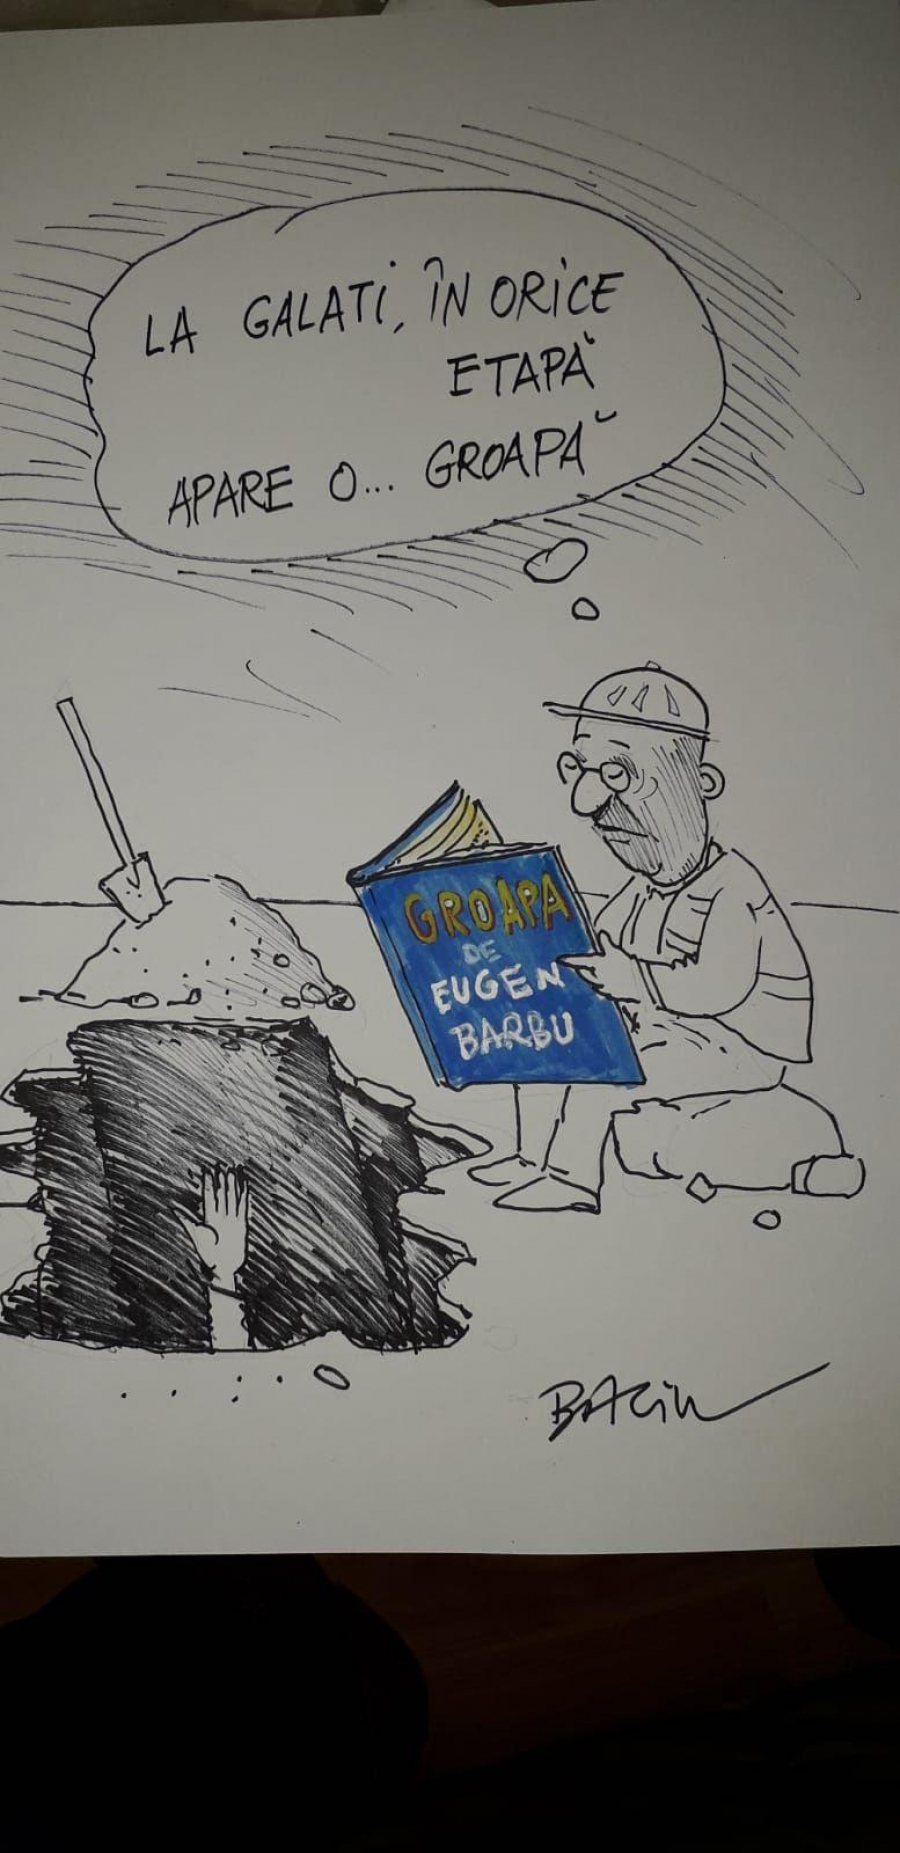 LA GALATI, ÎN ORICE
ETAPĂ
APARE O... GROAPĂ
GROAPA
DE
EUGEN
BARBU
BACIU